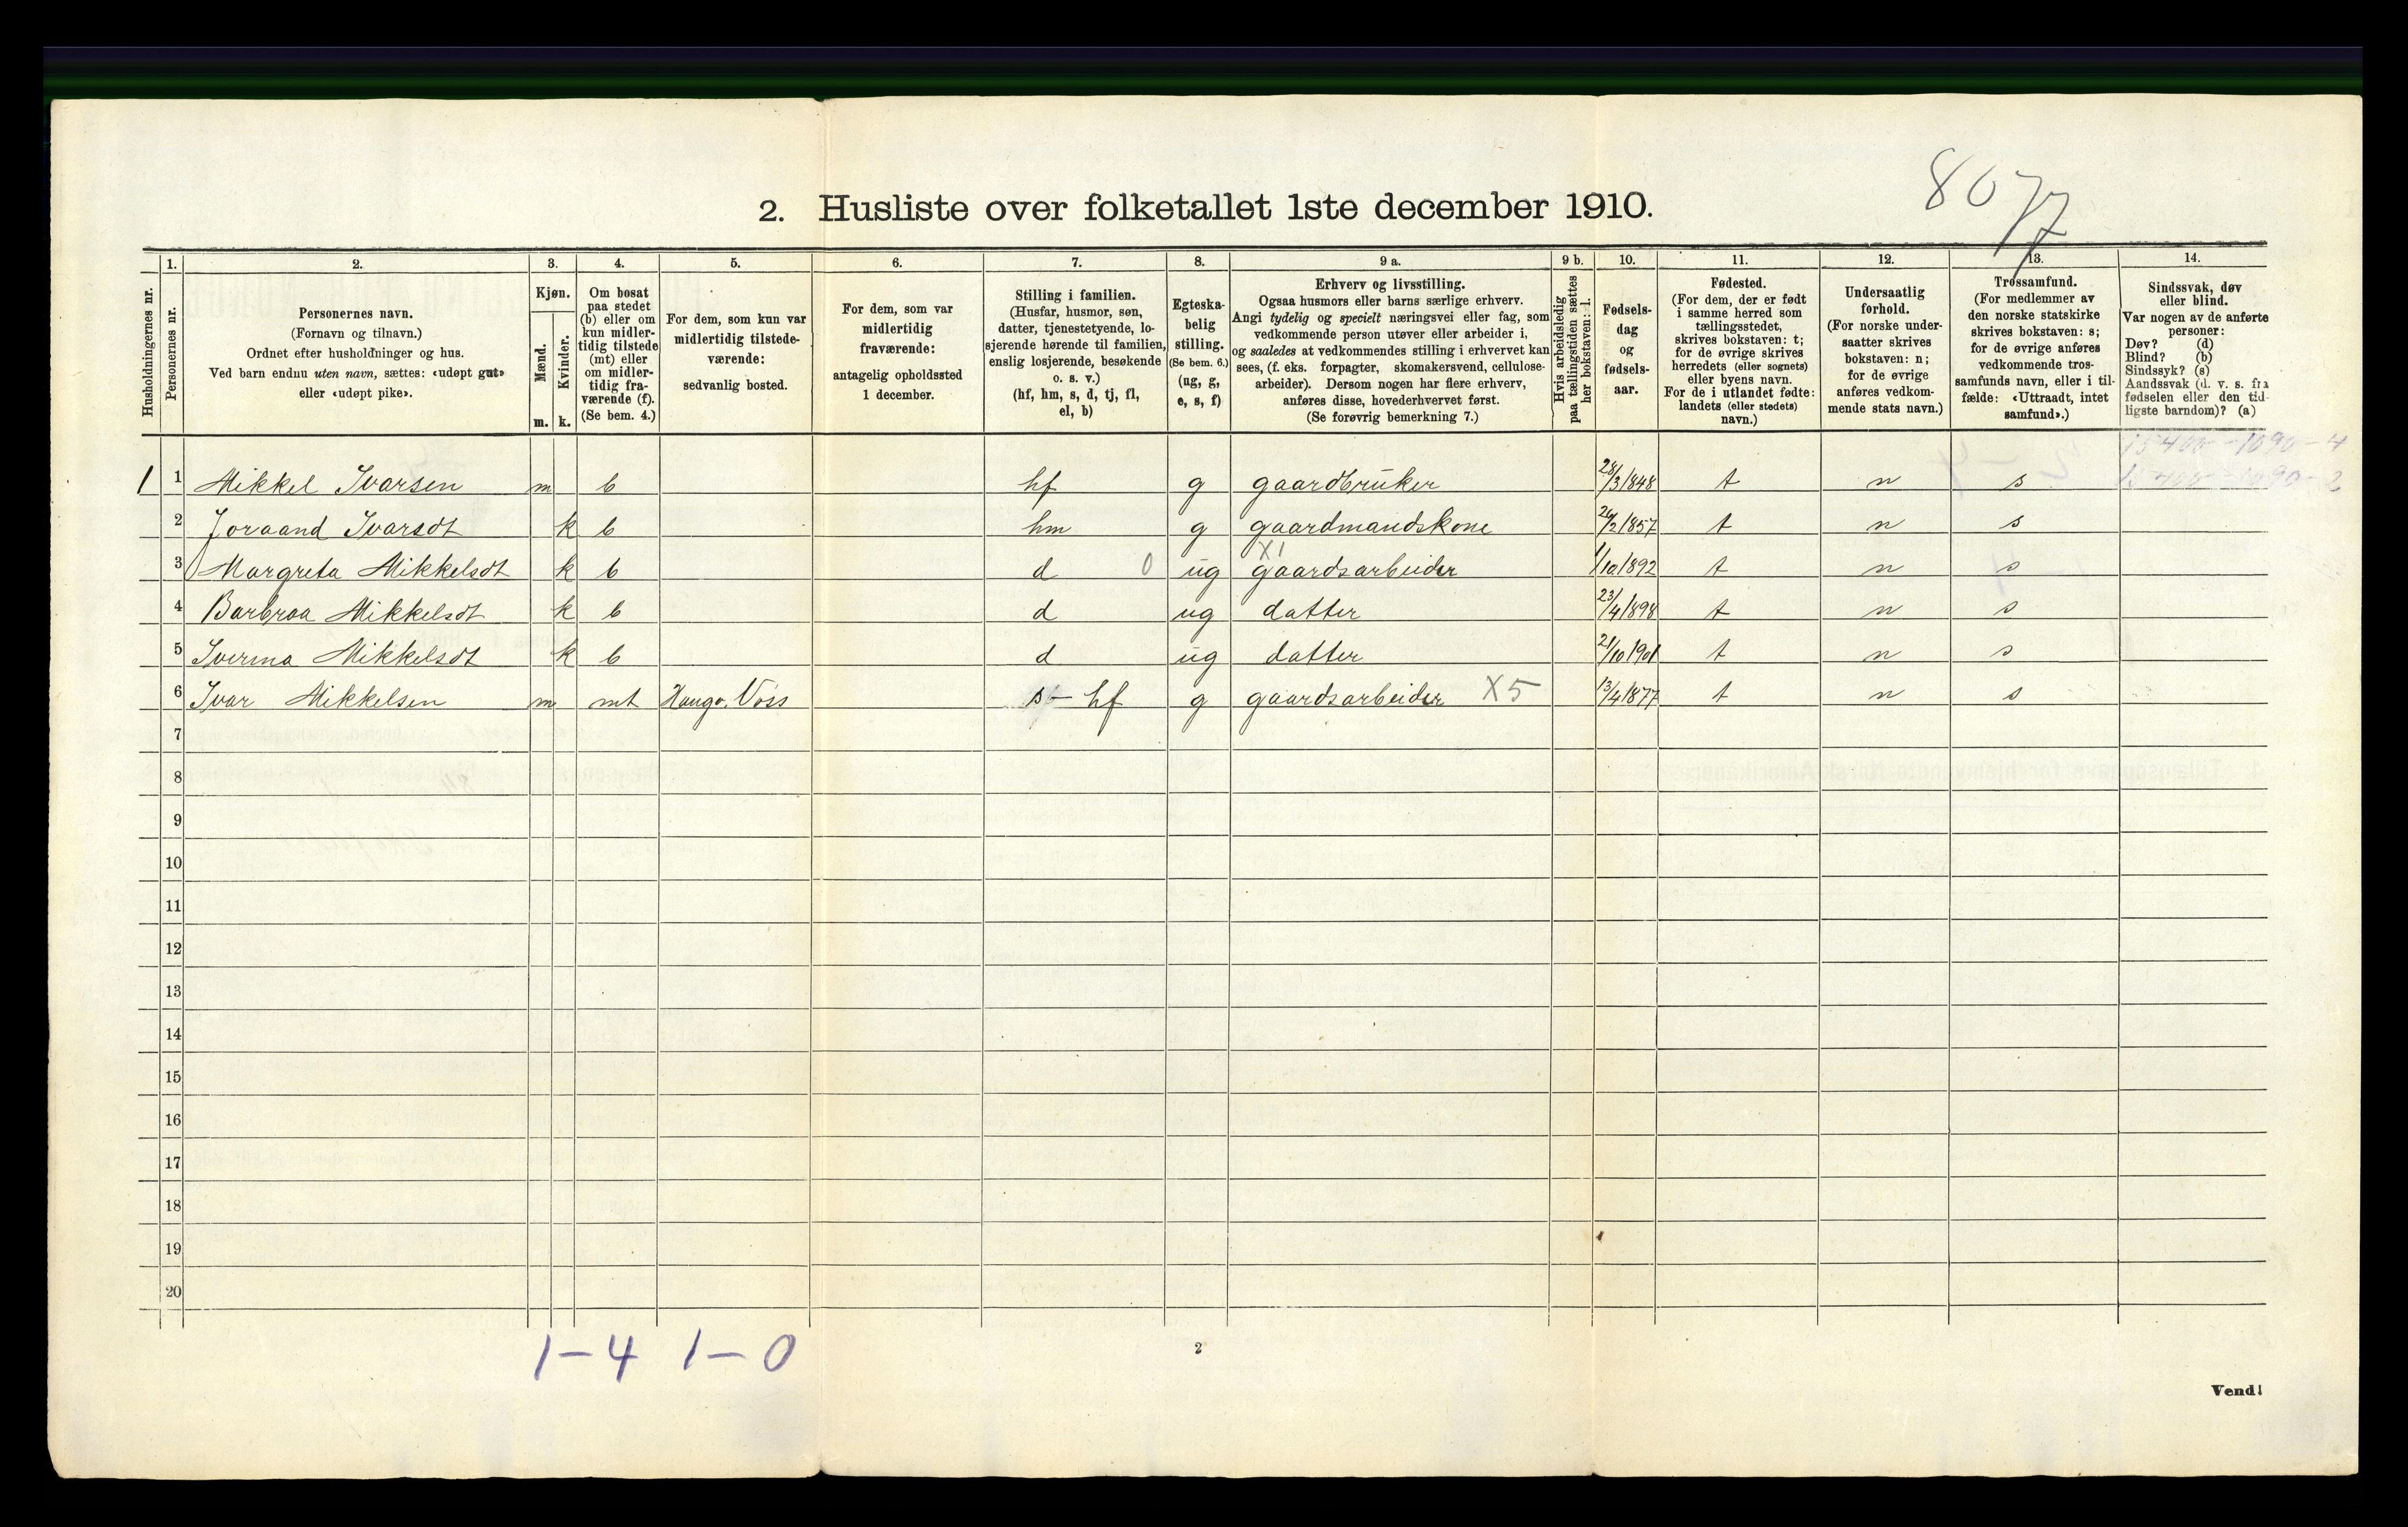 8077
2. Husliste over folketallet 1ste december 1910.
Husholdningernes nr.
1.
Personernes nr.
2.
Personernes navn.
(Fornavn og tilnavn.)
Ordnet efter husholdninger og hus.
Ved barn endnu uten navn, sættes: «udøpt gut»
eller «udøpt pike».
3.
Kjøn.
Mænd.
Kvinder.
m.
k.
4.
Om bosat
paa stedet
(b) eller om
kun midler-
tidig tilstede
(mt) eller
om midler-
tidig fra-
værende (f).
(Se bem. 4.)
5.
For dem, som kun var
midlertidig tilstede-
værende:
sedvanlig bosted.
6.
For dem, som var
midlertidig
fraværende:
antagelig opholdssted
1 december.
7.
Stilling i familien.
(Husfar, husmor, søn,
datter, tjenestetyende, lo-
sjerende hørende til familien,
enslig losjerende, besøkende
o. s. v.)
(hf, hm, s, d, tj, fl,
el, b)
8.
Egteska-
belig
stilling.
(Se bem. 6.)
(ug, g,
e, s, f)
9 a.
Erhverv og livsstilling.
Ogsaa husmors eller barns særlige erhverv.
Angi tydelig og specielt næringsvei eller fag, som
vedkommende person utøver eller arbeider i,
og saaledes at vedkommendes stilling i erhvervet kan
sees, (f. eks. forpagter, skomakersvend, cellulose-
arbeider). Dersom nogen har flere erhverv,
anføres disse, hovederhvervet først.
(Se forøvrig bemerkning 7.)
9 b.
Hvis arbeidsledig
paa tællingstiden sættes
her bokstaven: l.
10.
Fødsels-
dag
og
fødsels-
aar.
11.
Fødested.
(For dem, der er født
i samme herred som
tællingsstedet,
skrives bokstaven: t;
for de øvrige skrives
herredets (eller sognets)
eller byens navn.
For de i utlandet fødte:
landets (eller stedets)
navn.)
12.
Undersaatlig
forhold.
(For norske under-
saatter skrives
bokstaven: n;
for de øvrige
anføres vedkom-
mende stats navn.)
13.
Trossamfund.
(For medlemmer av
den norske statskirke
skrives bokstaven: s;
for de øvrige anføres
vedkommende tros-
samfunds navn, eller i til-
fælde: «Uttraadt, intet
samfund».)
14.
Sindssvak, døv
eller blind.
Var nogen av de anførte
personer:
Døv? (d)
Blind? (b)
Sindssyk? (s)
Aandssvak (d. v. s. fra
fødselen eller den tid-
ligste barndom)? (a)
1 1 Mikkel Ivarsen m b hf g gaardbruker 28/3 1848 t n s
2 Joraand Ivarsdt k b hm g gaardmandskone 26/2 1857 t n s
3 Margreta Mikkelsdt k b d 0 ug X1 gaardsarbeider 1/10 1892 t n s
4 Barbraa Mikkelsdt k b d ug datter 23/4 1898 t n s
5 Iverina Mikkelsdt k b d ug datter 21/10 1901 t n s
6 Ivar Mikkelsen m mt Haugo. Voss s - hf g gaardsarbeider X5 13/4 1877 t n s
7
8
9
10
11
12
13
14
15
16
17
18
19
20
1-4 1-0
2
Vend!